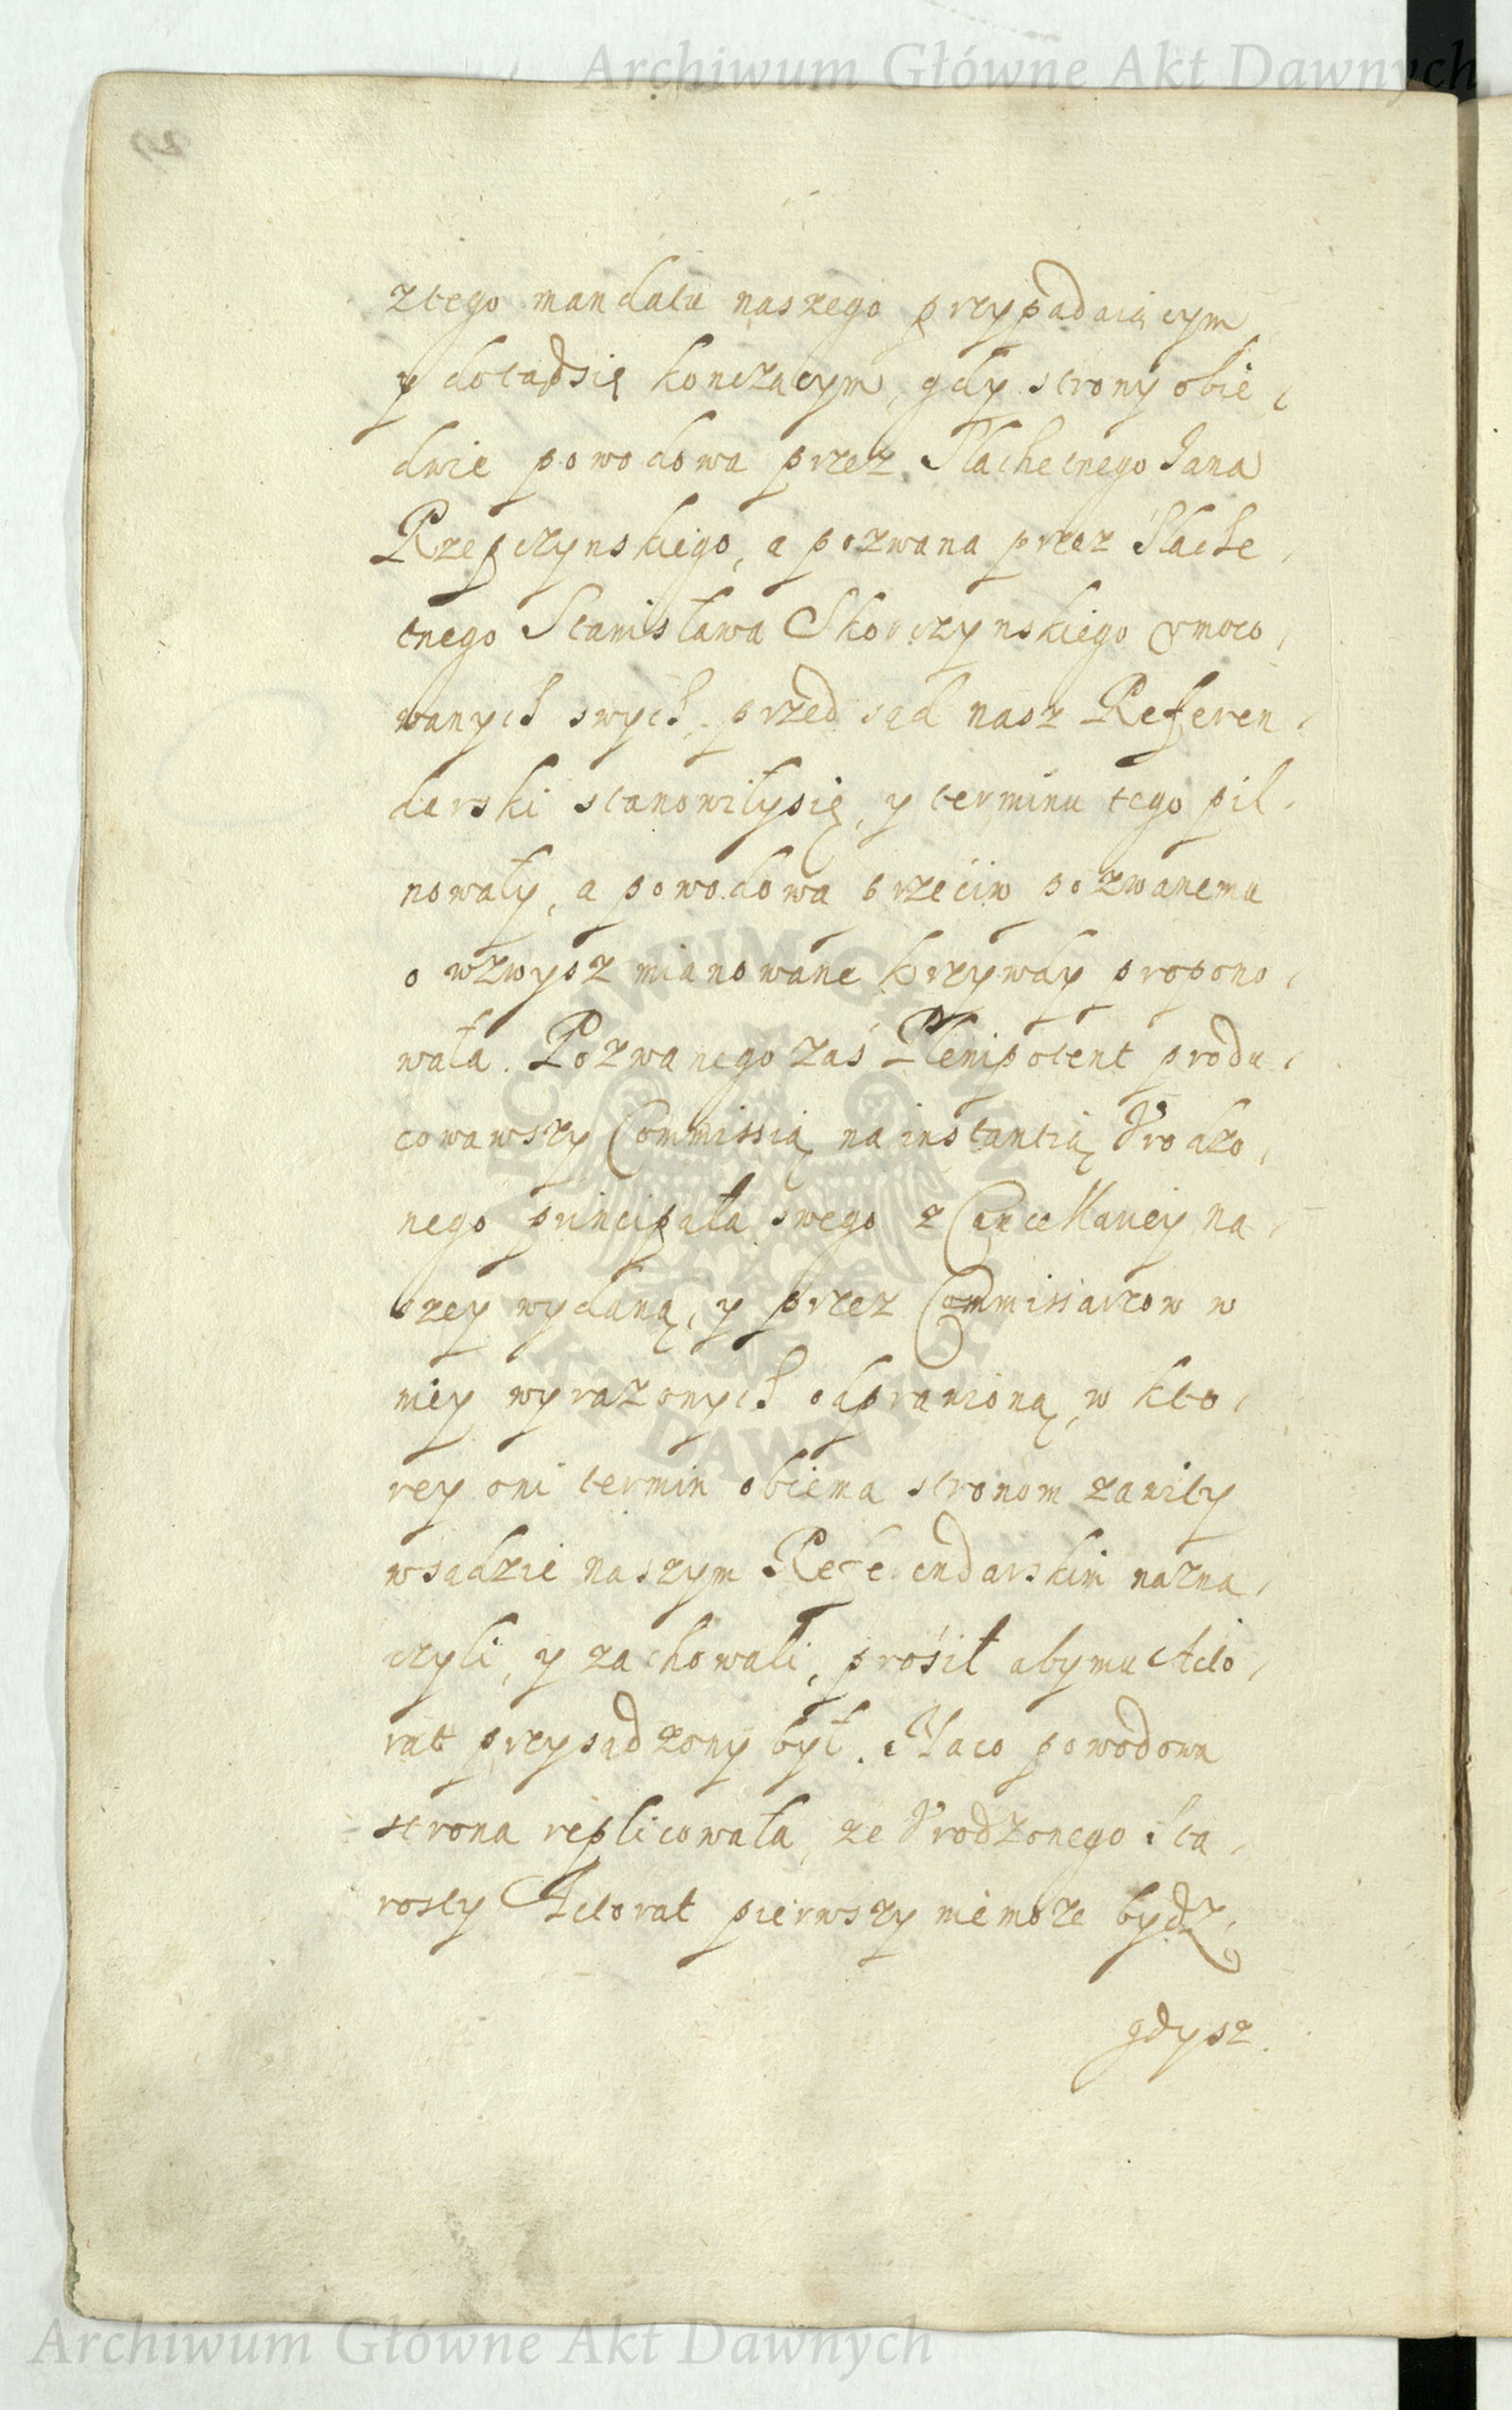 Archiwum Główne Akt Dawnych
z tego mandatu naszego przypadaiącym
y dotądsię konczącym, gdy strony obie,
dwie powodowa przez Slachetnego Jana
Rzepczynskiego, a pozwana przez Slache,
tnego Stanisława Skorczynskiego vmoco,
wanych swych, przed sąd nasz Referen,
darski stanowiłysię, y terminu tego pil,
nowały, a powodowa przeciw pozwanemu
o wzwysz mianowane krzywdy propono,
wała. Pozwanego zaś Plenipotent produ,
cowawszy Commissią na instantią Vrodzo,
nego principała swego z Cancellariey na,
szey wydaną, y przez Commissarzow w
niey wyrazonych odprawioną, w kto,
rey oni termin obiema stronom zawity
wsądzie naszym Referendarskim nazna,
czyli, y zachowali, prosił abymu Acto,
rat przysądzony był. Naco powodowa
strona replicowała, ze Vrodzonego Sta,
rosty Actorat pierwszy niemoze bydz,
gdysz.
ARCHIWUM GŁÓWNE AKT DAWNYCH
Archiwum Główne Akt Dawnych